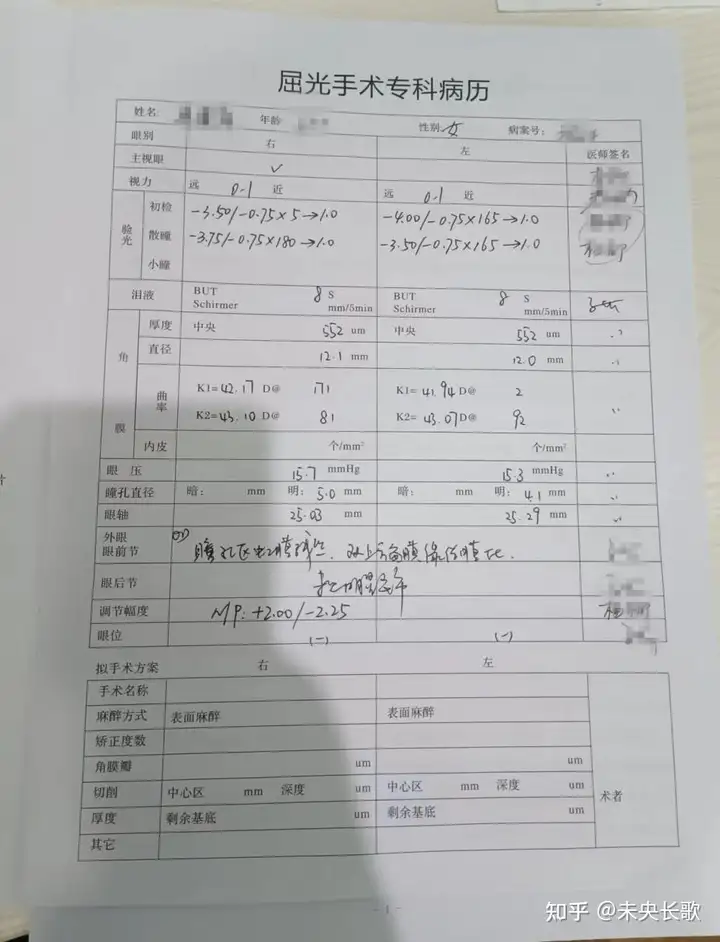 屈光手术专科病历
姓名: 年龄: 性别: 女 病案号:
眼别 右 左 医师签名
主视眼 ✓
视力 远 0.1 近 远 0.1 近
验光 初检 -3.50/-0.75×5→1.0 -4.00/-0.75×165→1.0
散瞳 -3.75/-0.75×180→1.0 -3.50/-0.75×165→1.0
小瞳
泪液 BUT 8 S BUT 8 S
Schirmer mm/5min Schirmer mm/5min
角膜 厚度 中央 552 um 中央 552 um
直径 12.1 mm 12.0 mm
曲率 K1=42.17 D@ 171 K1=41.94 D@ 2
K2=43.10 D@ 81 K2=43.07 D@ 92
内皮 个/mm² 个/mm²
眼压 15.7 mmHg 15.3 mmHg
瞳孔直径 暗: mm 明: 5.0 mm 暗: mm 明: 4.1 mm
眼轴 25.03 mm 25.29 mm
外眼
眼前节
眼后节
调节幅度 MP: +2.00/-2.25
眼位 (-) (-)
拟手术方案 右 左
手术名称
麻醉方式 表面麻醉 表面麻醉
矫正度数
角膜瓣 um um
切削 中心区 mm 深度 um 中心区 mm 深度 um 术者
厚度 剩余基底 um 剩余基底 um
其它
- 1 -
知乎 @未央长歌